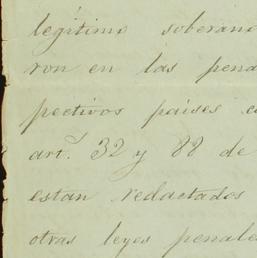 legítimo soberano
ron en las pena
pectivos países co
art.º 32 y 88 de
están redactados
otras leyes penale